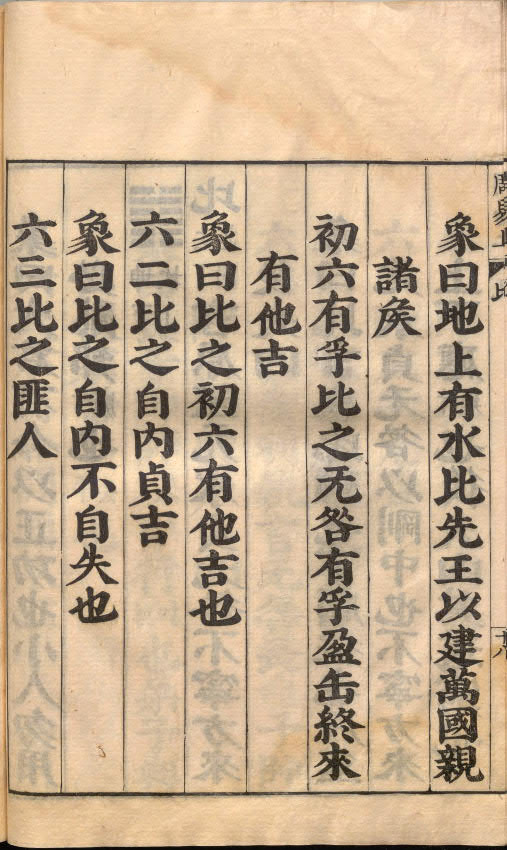 象曰地上有水比先王以建萬國親
諸矦
初六有孚比之无咎有孚盈缶終來
有他吉
象曰比之初六有他吉也
六二比之自内貞吉
象曰比之自内不自失也
六三比之匪人